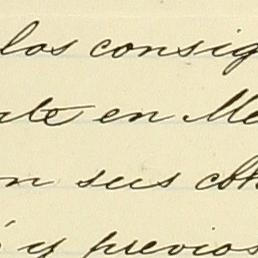 los consig
te en Me
n sus cot
y previos